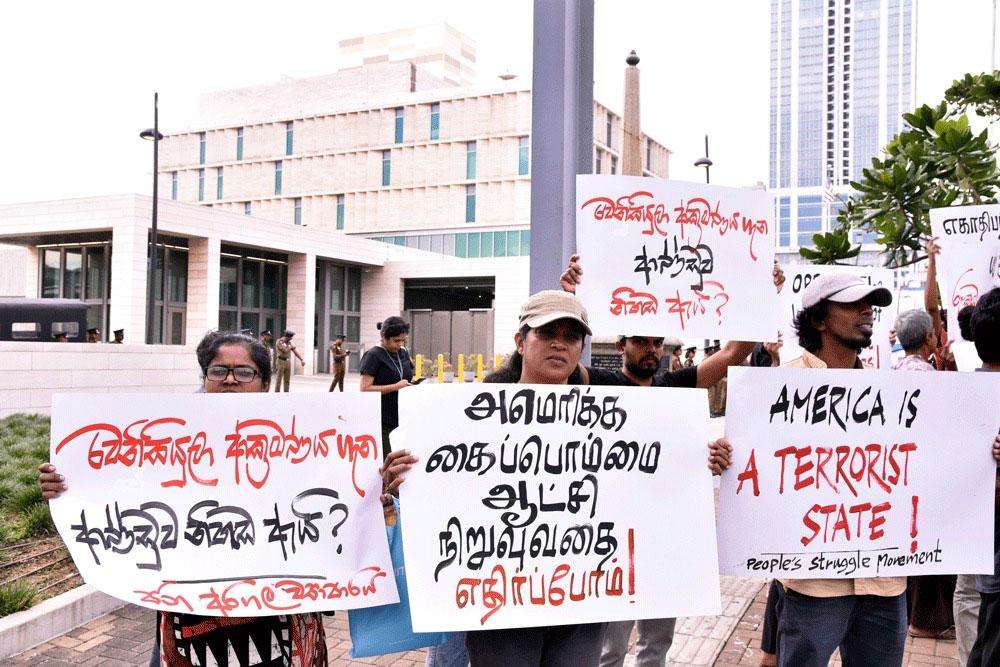 වෙනිසියුලා ආක්‍රමණය ගැන
ආණ්ඩුව නිහඬ ඇයි?
ජන අරගල ව්‍යාපාරය
அமெரிக்க
கைப்பொம்மை
ஆட்சி
நிறுவுவதை
எதிர்ப்போம்!
වෙනිසියුලා ආක්‍රමණය ගැන
ආණ්ඩුව
නිහඬ ඇයි?
AMERICA IS
A TERRORIST
STATE!
People's Struggle Movement